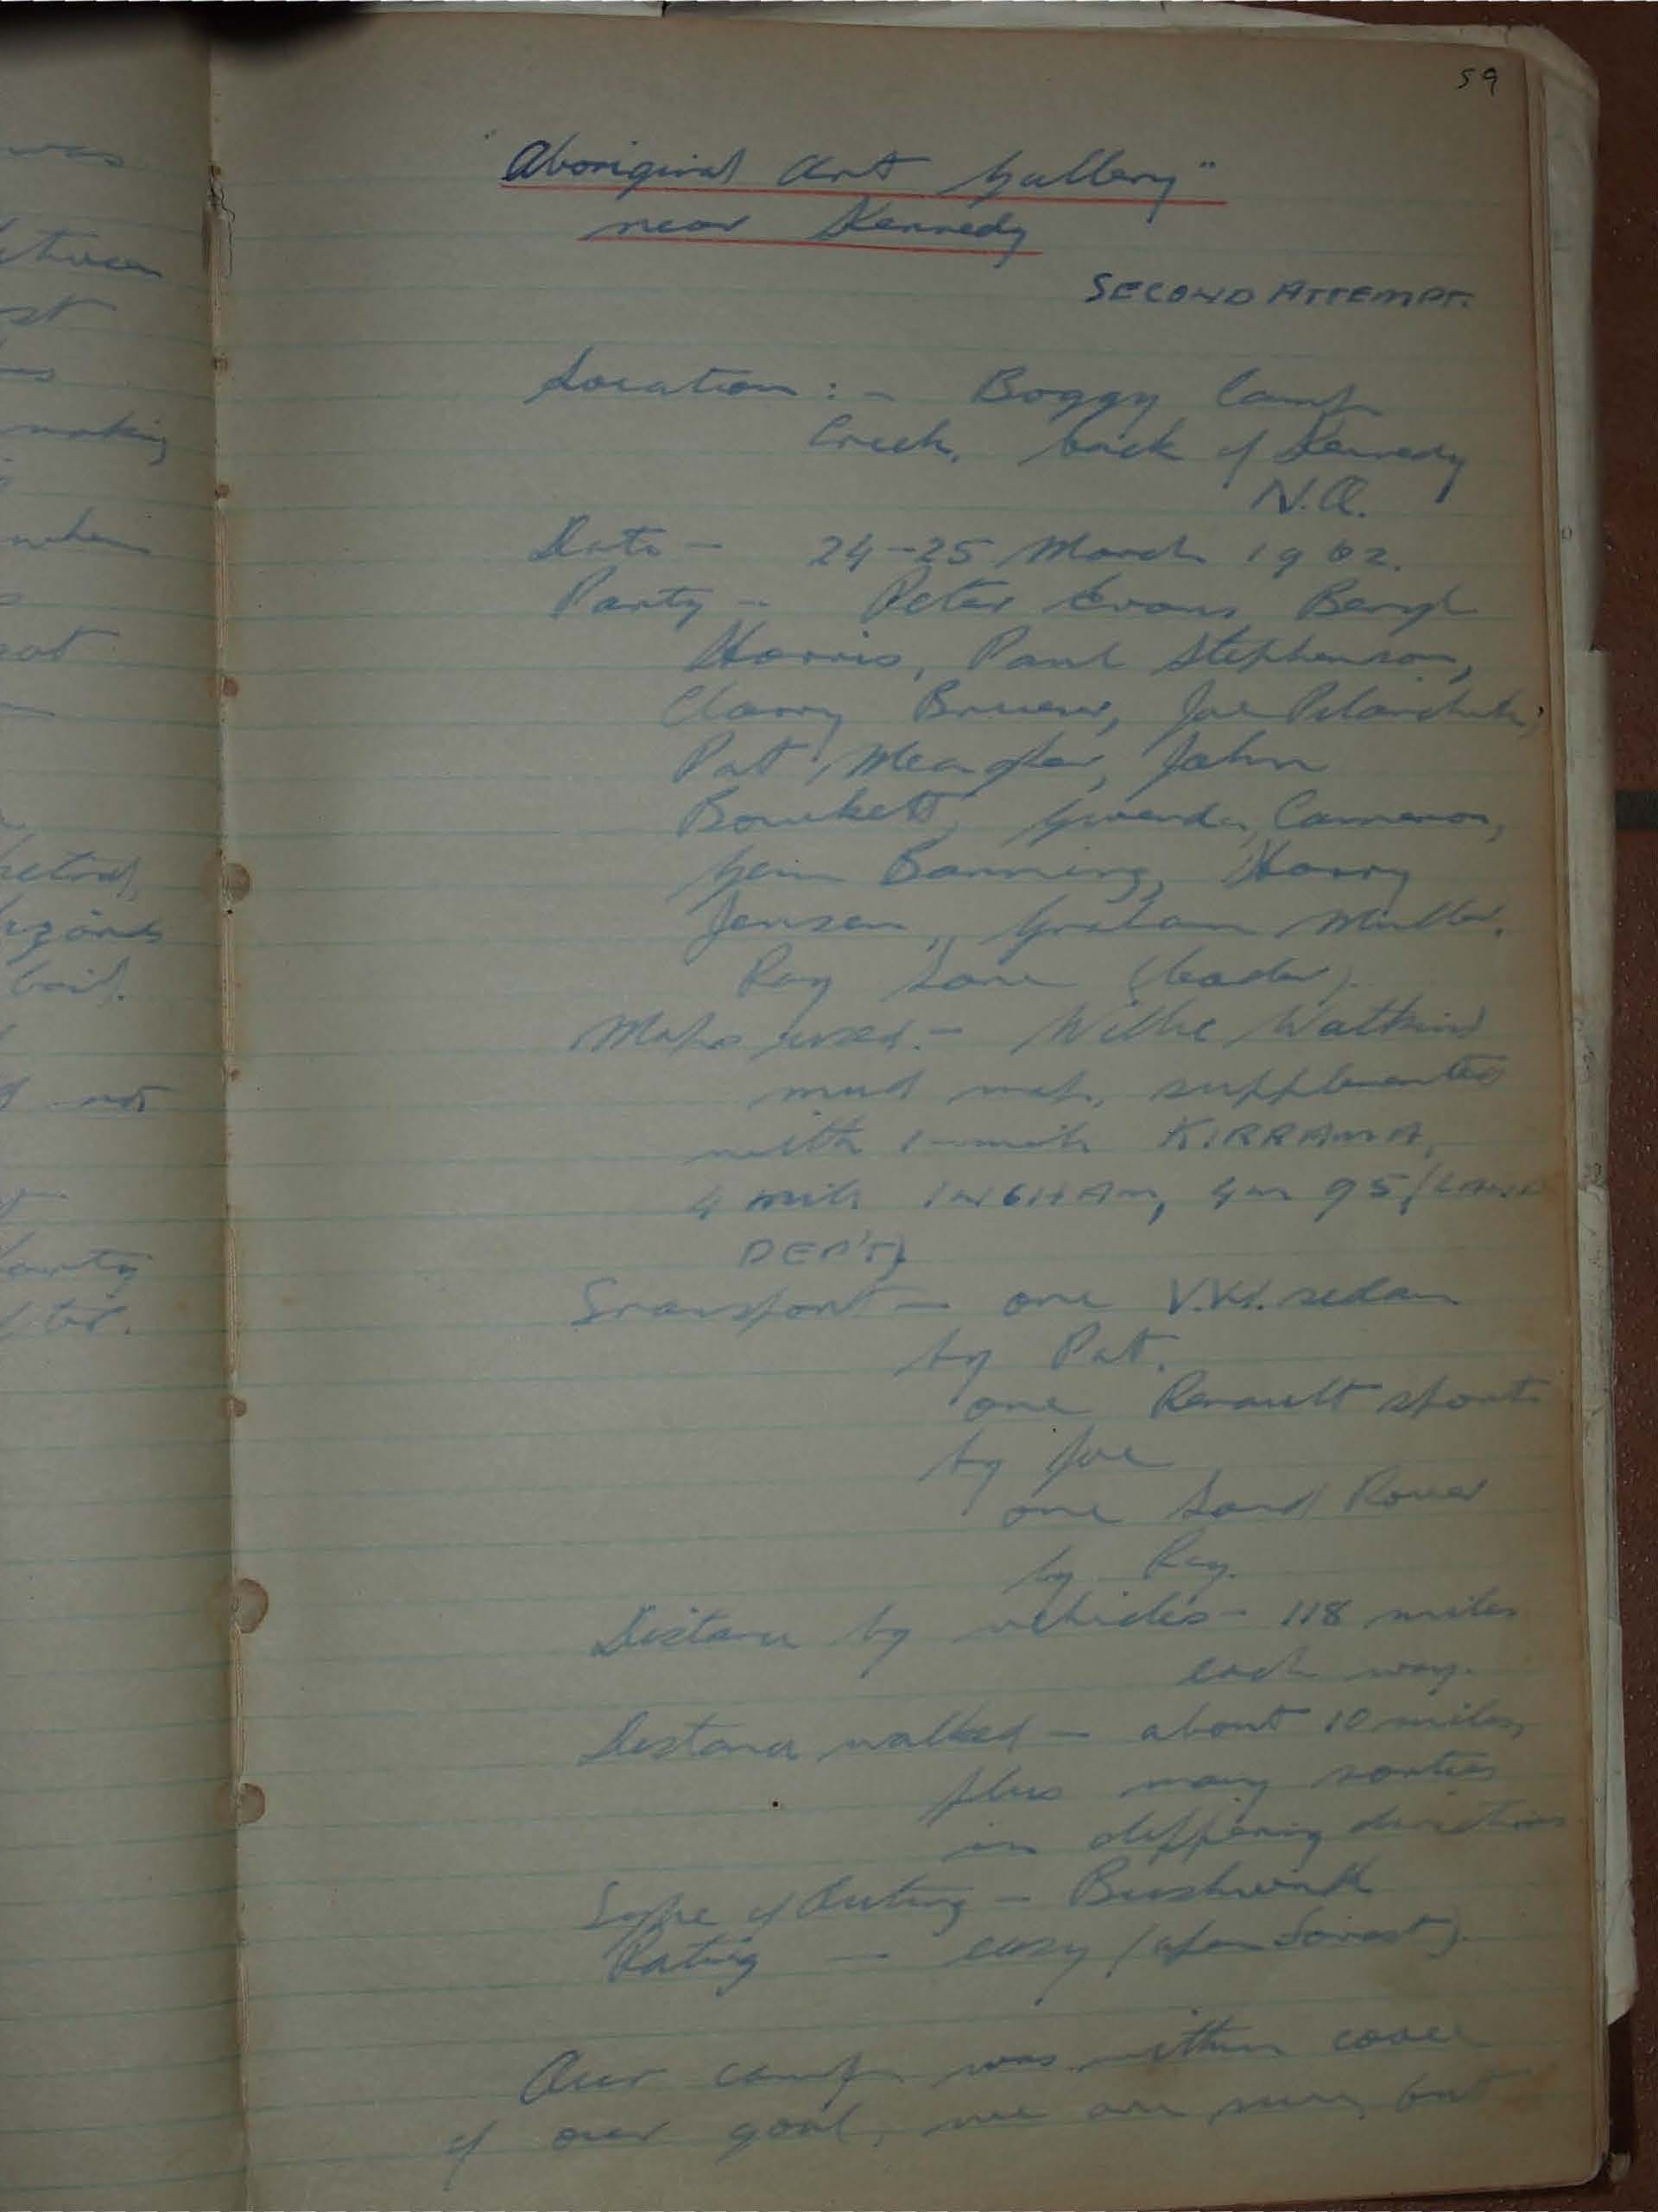 was
59
"Aboriginal Art Gallery"
near Kennedy
SECOND ATTEMPT.
st
Location :- Boggy Camp
making
Creek, back of Kennedy
N.Q.
when
Date - 24-25 March 1962.
Party - Peter Evans Beryl
Harris, Paul Stephenson,
Clarry Bruewer, Joe
Pat Meagher, John
Bowkett, Gwenda Cameron,
Banning, Harry
Jensen, Graham
Ray (leader).
Maps used:- Willie Watkins
mud map, supplemented
not
with 1-mile KIRRAMA,
4 mile INGHAM, 4m 95 (LAND
DEP'T)
Transport - one V.W. sedan
by Pat.
one Renault sports
by Joe
one Land Rover
by Ray.
Distance by vehicles - 118 miles
each way.
Distance walked - about 10 miles,
plus many sorties
in differing directions
Type of Outing - Bushwalk
Rating - easy (open forest).
Our camp was within cooee
of our goal, we are sure, but